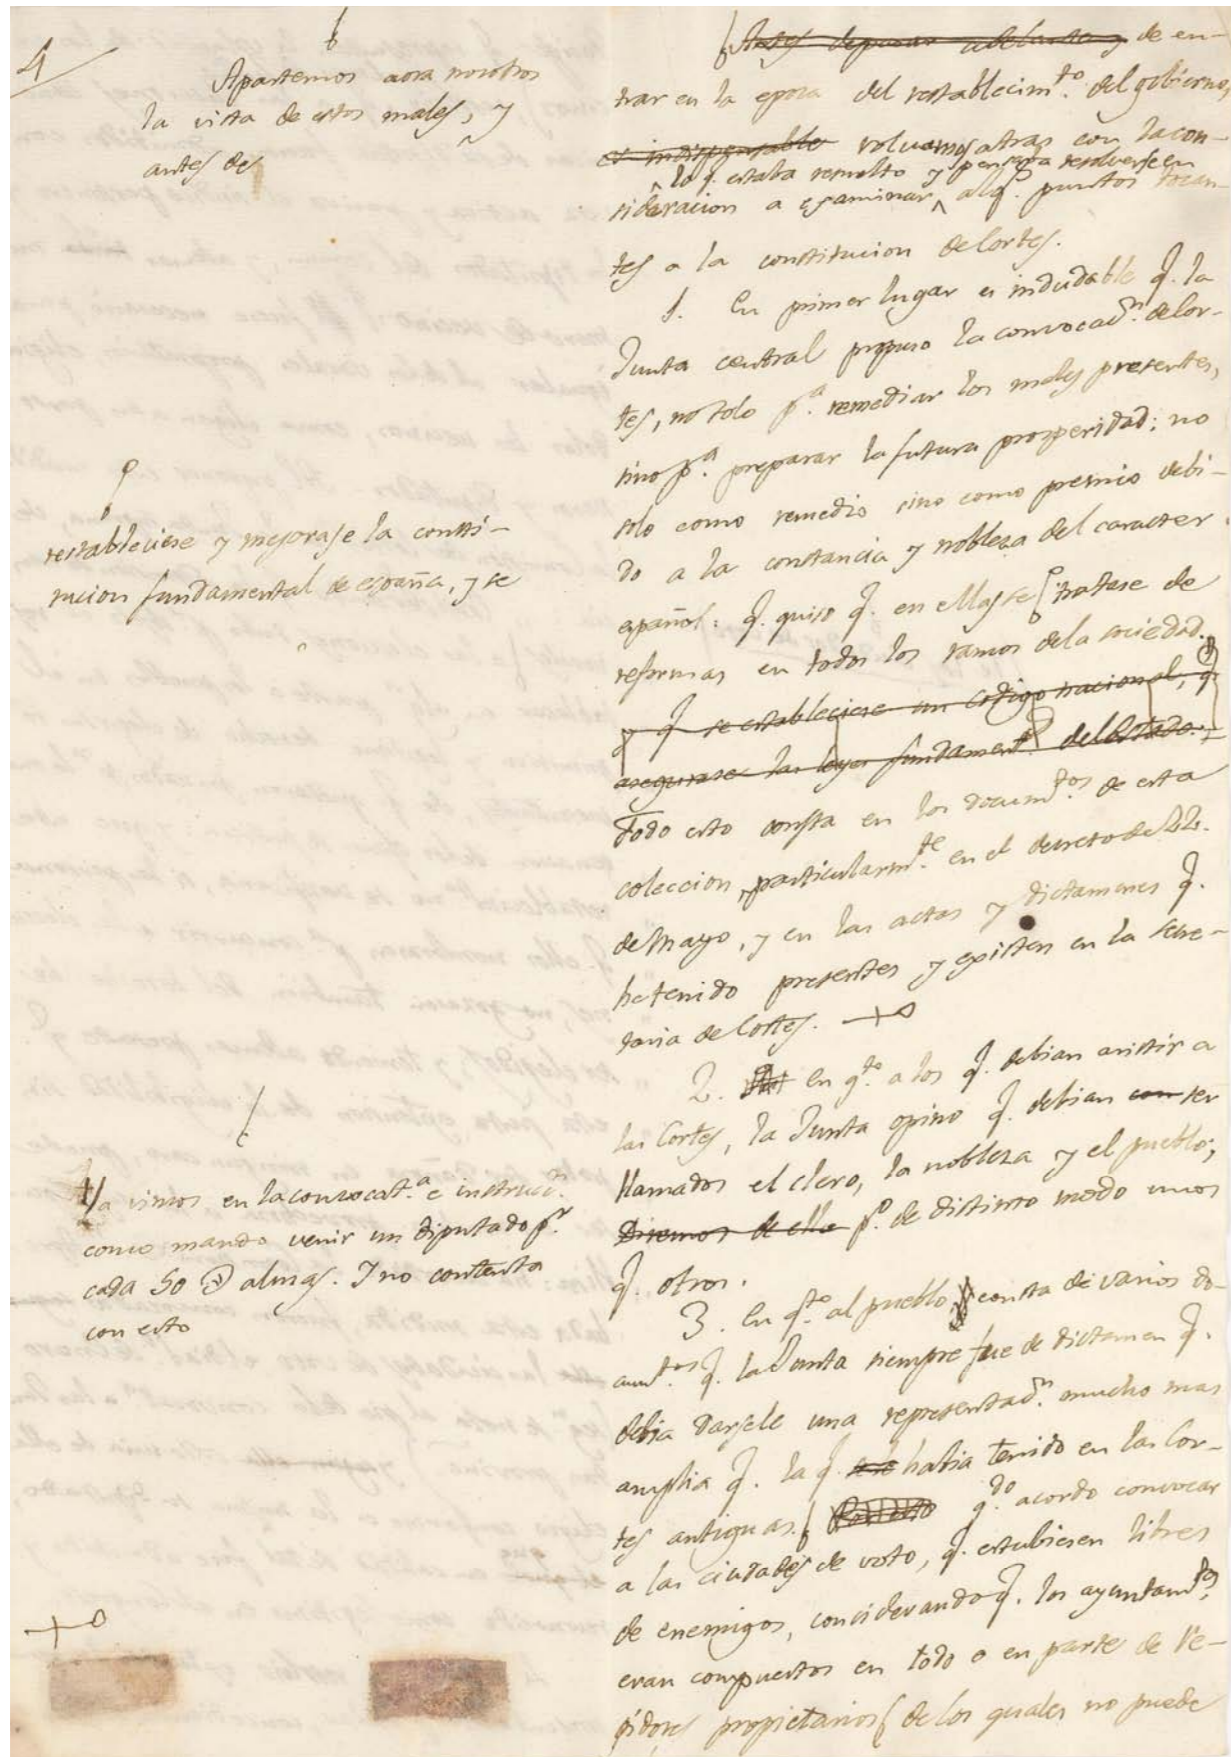 4
Apartemos aora nosotros
la vista de estos males, y
antes de
restableciese y mejorase la consti-
tucion fundamental de españa, y se
Ya vimos en la convocat.ª e instrucc.n
como mando venir un diputado p.r
cada 50 D almas. I no contenta
con esto
Antes de pasar adelante y de en-
trar en la epoca del restablecim.to del gobierno,
es indispensable volvamos atras con la con-
lo q. estaba resuelto y pensaba resolverse en
sideracion a examinar alg.s puntos tocan-
tes a la constitucion de Cortes.
1. En primer lugar es indudable q. la
Junta central propuso la convocac.n de Cor-
tes, no solo p.ª remediar los males presentes,
sino p.ª preparar la futura prosperidad: no
solo como remedio sino como premio debi-
do a la constancia y nobleza del caracter
español: q. quiso q. en ellas se tratase de
reformas en todos los ramos de la sociedad.
y q. se estableciese un codigo nacional, q.
asegurase las leyes fundament.s del Estado.
Todo esto consta en los docum.tos de esta
coleccion, particularm.te en el decreto de 22.
de Mayo, y en las actas y dictamenes q.
he tenido presentes y existen en la secre-
taria de Cortes.
2. En q.to a los q. debian asistir a
las Cortes, la Junta opino q. debian con ser
llamados el clero, la nobleza y el pueblo;
Diremos de ella p.o de distinto modo unos
q. otros.
3. En q.to al pueblo consta de varios do-
cum.tos q. la Junta siempre fue de dictamen q.
debia darsele una representac.n mucho mas
amplia q. la q. habia tenido en las Cor-
tes antiguas. q.do acordo convocar
a las ciudades de voto, q. estubiesen libres
de enemigos, considerando q. los ayuntam.tos
eran compuestos en todo o en parte de Re-
gidores propietarios de los quales no puede